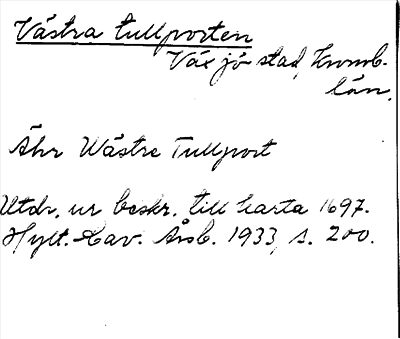 Västra tullporten
Växjö stad, Kronob.
län.
Ähr Wästre Tullport
Utdr. ur beskr. till karta 1697.
Hylt.-Cav. Årsb. 1933, s. 200.